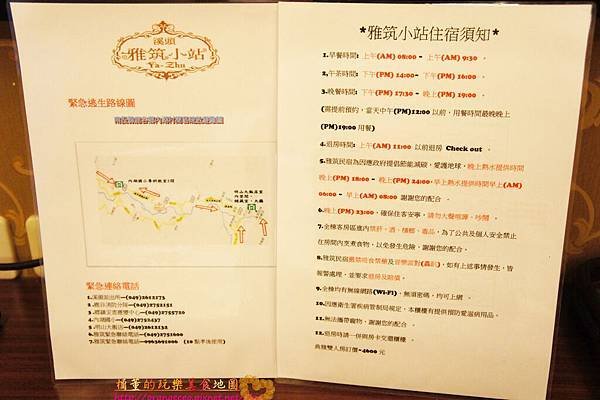 溪頭
雅筑小站
Ya-Zhu
緊急逃生路線圖
緊急連絡電話
1.溪頭派出所—(049)2612275
2.鹿谷消防分隊—(049)2752151
4.內湖國小—(049)2752437
5.明山大飯店—(049)2612132
6.雅筑緊急聯絡電話—(049)2751600
*雅筑小站住宿須知*
1.早餐時間：上午(AM) 08:00 - 上午(AM) 9:30 。
2.午茶時間：下午(PM) 14:00- 下午(PM) 16:00 。
3.晚餐時間：下午(PM) 17:30 - 晚上(PM) 19:00 。
(需提前預約，當天中午(PM)12:00 以前、用餐時間最晚晚上
(PM)19:00 用餐)
4.退房時間：上午(AM) 11:00 以前退房 Check out 。
5.雅筑民宿為因應政府提倡節能減碳，愛護地球，晚上熱水提供時間
晚上(PM) 18:00 - 晚上(PM) 24:00，早上熱水提供時間早上(AM)
06:00 - 早上(AM) 08:00 謝謝您的配合。
6.晚上(PM) 23:00，確保住客安寧，請勿大聲喧譁、吵鬧 。
7.全棟客房區進內禁菸、酒、檳榔、毒品，為了公共及個人安全禁止
在房間內烹煮食物，以免發生危險，謝謝您的配合。
報警處理，並要求退房及賠償。
9.全棟均有無線網路(Wi-Fi)，無須密碼，均可上網 。
10.因應衛生署疾病管制局規定，本櫃檯有提供預防愛滋病用品。
11.無法攜帶寵物，謝謝您的配合。
12.退房時請一併與房卡交還櫃檯
典雅雙人房訂價~4600 元
的玩樂美食地圖